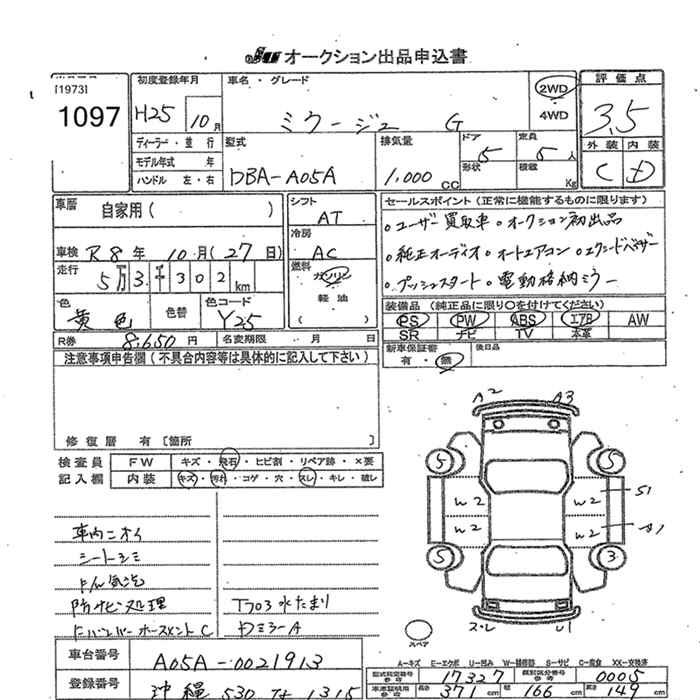 JU オークション出品申込書
[1973]
1097
初度登録年月
H25 10月
車名・グレード
ミラージュ G
2WD
4WD
評価点
3.5
外装 内装
C D
ディーラー・並行
モデル年式 年
ハンドル 左・右
型式
DBA-A05A
排気量
1,000 CC
ドア
形状
5
定員
積載
5人
Kg
車歴
自家用( )
シフト
AT
冷房
AC
燃料
ガソリン
軽油
( )
車検 R8年 10月(27日)
走行
5万3千302km
色
黄色
色替
色コード
Y25
R券 8,650円 名変期限 月 日
セールスポイント(正常に機能するものに限ります)
○ユーザー買取車 ○オークション初出品
○純正オーディオ ○オートエアコン
○プッシュスタート ○電動格納ミラー
装備品(純正品に限り○を付けてください)
PS PW ABS エアB AW
SR ナビ TV 本革
新車保証書
有・無
後日品
注意事項申告欄(不具合内容等は具体的に記入して下さい)
修復歴 有[箇所 ]
検査員
記入欄
FW キズ・飛石・ヒビ割・リペア跡・×要
内装 キズ・汚れ・コゲ・穴・スレ・キレ・破レ
車内ニオイ
シートシミ
防サビ処理
フロア水たまり
ドアミラーA
A2 A3
5 5
W2 W2 S1
W2 W2 A1
5 3
U1
スペア
A-キズ E-エクボ U-凹み W-補修跡 S-サビ C-腐食 XX-交換済
車台番号
A05A-0021913
登録番号
沖縄 530 1315
型式指定番号
参考
17327
類別区分番号
参考
0005
車庫証明用
参考
長さ 371cm 幅 166cm 高さ 149cm